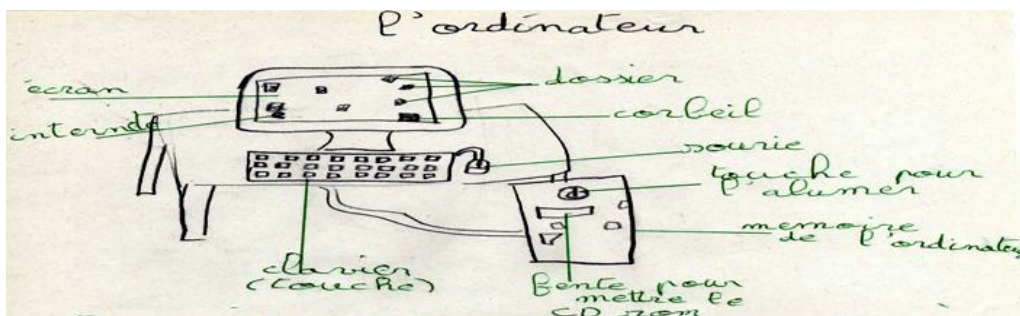 l'ordinateur
écran
dossier
internte
corbeil
sourie
touche pour
l'alumer
memoire
de l'ordinateur
clavier
(touche)
fente pour
mettre le
CD rom